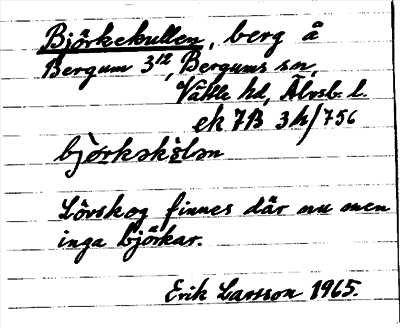 Björkekullen, berg å
Bergum 3¹², Bergums sn,
Vättle hd, Älvsb. l.
ek 7B 3h/756
björkəkölən
Lövskog finnes där nu men
inga björkar.
Erik Larsson 1965.